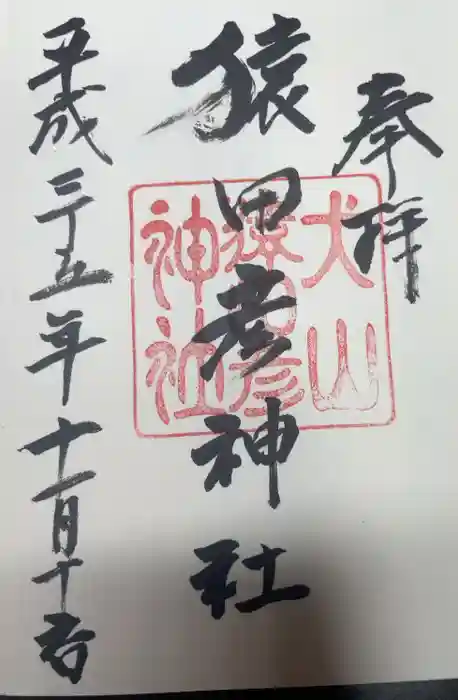 奉拝
犬山
猿田彦
神社
猿田彦神社
平成二十五年十一月十七日